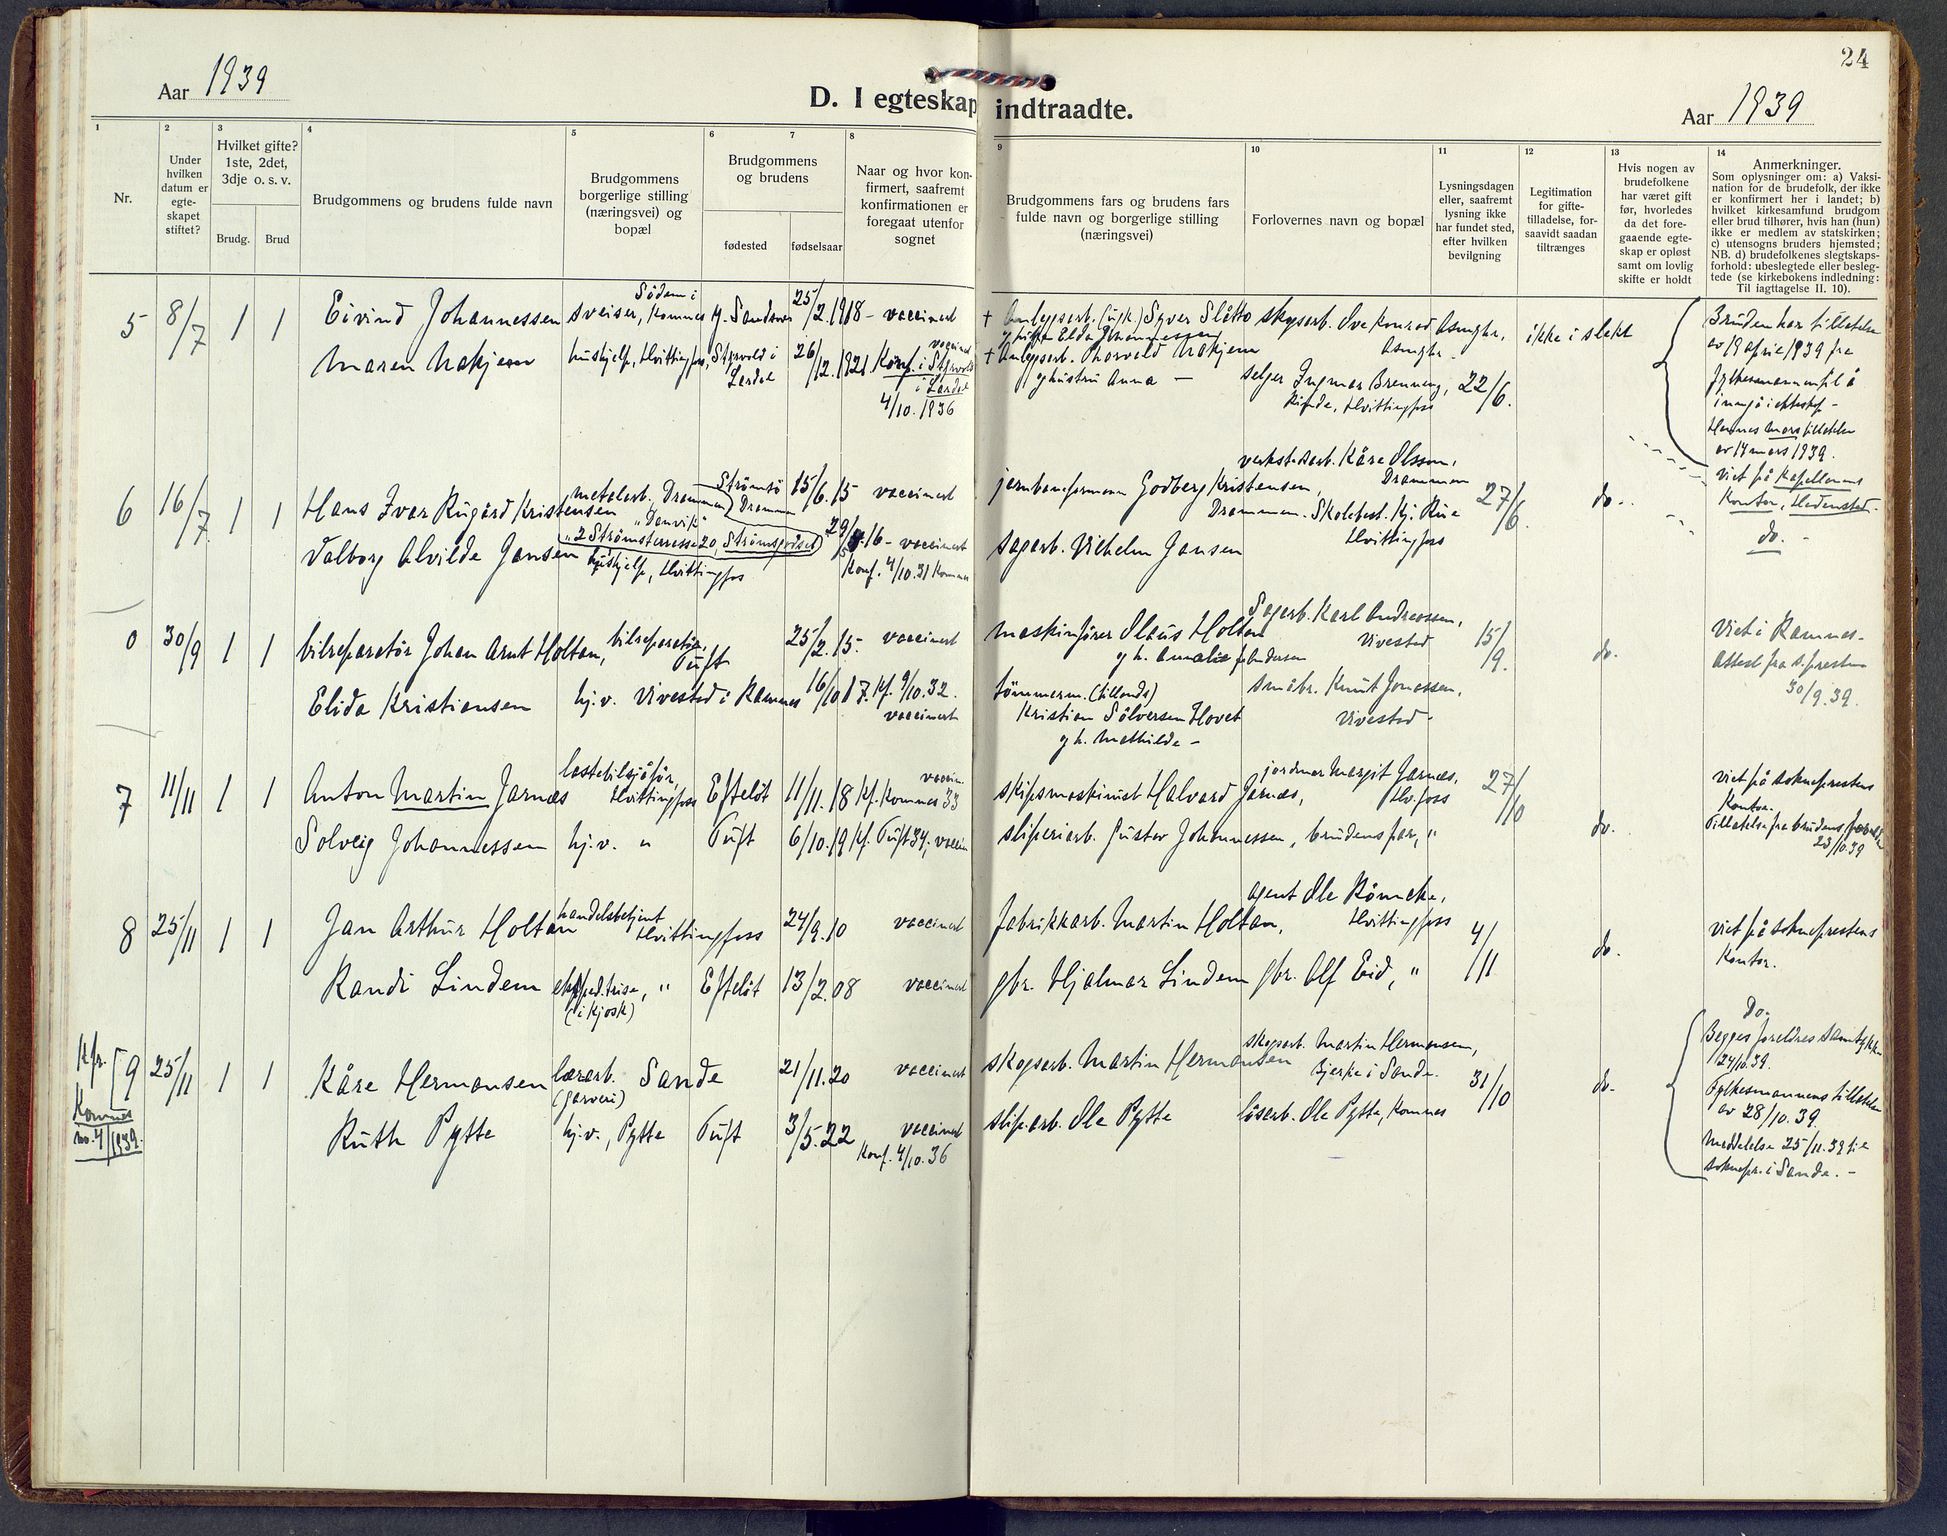 24
Aar 1939
D. I egteskap indtraadte.
Aar 1939
1 2 3 4 5 6 7 8 9 10 11 12 13 14
Nr.
Under hvilken datum er egte-skapet stiftet?
Hvilket gifte? 1ste, 2det, 3dje o. s. v.
Brudg. Brud
Brudgommens og brudens fulde navn
Brudgommens borgerlige stilling (næringsvei) og bopæl
Brudgommens og brudens
fødested fødselsaar
Naar og hvor kon-firmert, saafremt konfirmationen er foregaat utenfor sognet
Brudgommens fars og brudens fars fulde navn og borgerlige stilling (næringsvei)
Forlovernes navn og bopæl
Lysningsdagen eller, saafremt lysning ikke har fundet sted, efter hvilken bevilgning
Legitimation for gifte-tilladelse, for-saavidt saadan tiltrænges
Hvis nogen av brudefolkene har været gift før, hvorledes da det fore-gaaende egte-skap er opløst samt om lovlig skifte er holdt
Anmerkninger.
Som oplysninger om: a) Vaksi-nation for de brudefolk, der ikke er konfirmert her i landet; b) hvilket kirkesamfund brudgom eller brud tilhører, hvis han (hun) ikke er medlem av statskirken; c) utensogns bruders hjemsted; NB. d) brudefolkenes slegtskaps-forhold: ubeslegtede eller besleg-tede (se kirkebokens indledning: Til iagttagelse II. 10).
5 8/7 1 1 Eivind Johannessen
sveiser, Komnes
25/2.1918 - vaccinert
skogsarb. Ove Konrad Asmyhr,
Asmyhr.
ikke i slekt
Bruden har tillatelse
av 19 april 1939 fra
fylkesmannen til å
inngå ekteskap -
Hennes mors tillatelse
av 14 mars 1939.
Maren Nakjem
hushjelp, Hvittingfoss, Styrvold i
Lardal
26/12.1921 Konf. i Styrvold
i Lardal
4/10.1936
+ Anleggsarb. Thorvald Nakjem
og hustru Anna -
selger Ingmar Brenning,
Hvittingfoss
22/6.
6 16/7 1 1 Hans Ivar Rugård Kristensen
metalarb. Drammen
"Danvik"
Strømsø
Drammen
15/6.15 vaccinert
jernbaneformann Godberg Kristensen,
Drammen.
verkst.sarb. Kåre Olsson,
Drammen
27/6.
do.
viet på kapellanens
kontor, Hedenstad.
do.
Valborg Alvilde Jansen
"2 Strømsterrasse 20, Strømsgodset
hushjelp, Hvittingfoss
16 - vaccinert
Konf. 4/10.31 Komnes
sagarb. Vilhelm Jansen
Skolebest. Kj. Rue
Hvittingfoss
0 30/9 1 1 bilreparatør Johan Arnt Holtan,
bilreparatør,
Tuft
25/2.15. vaccinert
maskinfører Olaus Holtan
og h. Amalie f. Andersen
Sagarb. Karl Andreassen,
Vivestad
15/9.
do.
Viet i Ramnes -
Attest fra s.presten
30/9.39.
Elida Kristiansen
hj.v. Vivestad i Ramnes
16/10 17. Kf. 9/10.32.
vaccinert
tømmerm.
Kristian Sølversen Hovet
og h. Mathilde -
småbr. Knut Jonassen,
Vivestad -
7 11/11 1 1 Anton Martin Jarnæs
lastebilsjåfør,
Hvittingfoss
Efteløt 11/11.18 Kf. Komnes 33
vaccin.
skipsmaskinist Halvard Jarnæs,
jordmor Margit Jarnæs,
Hv.foss
27/10
do.
viet på sokneprestens
kontor.
Tillatelse fra brudens foreldre
23/10.39
Solveig Johannessen
hj.v. " Tuft 6/10.19 Kf. Tuft 34; vaccin
sliperiarb. Gustav Johannessen, brudens far, "
8 25/11 1 1 Jan Arthur Holtan
handelsbetjent
Hvittingfoss
24/9.10 vaccinert
fabrikkarb. Martin Holtan,
agent Ole Rönneke,
Hvittingfoss
4/11
do.
viet på sokneprestens
kontor.
Randi Lindem
ekspeditrise, "
(i kjosk)
Efteløt 13/2.08 vaccinert
gbr. Hjalmar Lindem
gbr. Alf Eid, "
Kfr.
Komnes
no. 4/1939.
9 25/11 1 1 Kåre Hermansen
lærarb.
(garveri)
Sande 21/11.20 vaccinert
skogsarb. Martin Hermansen
skogsarb. Martin Hermansen,
Bjerke i Sande.
31/10
do.
Do.
Begges foreldres samtykke
24/10.39.
Fylkesmannens tillatelse
av 28/10.39.
Meddelelse 25/11.39 til
soknepr. i Sande. -
Ruth Pytte
hj.v., Pytte Tuft 3/5.22 vaccinert
Konf. 4/10.36
slip.arb. Ole Pytte
løsarb. Ole Pytte, Komnes